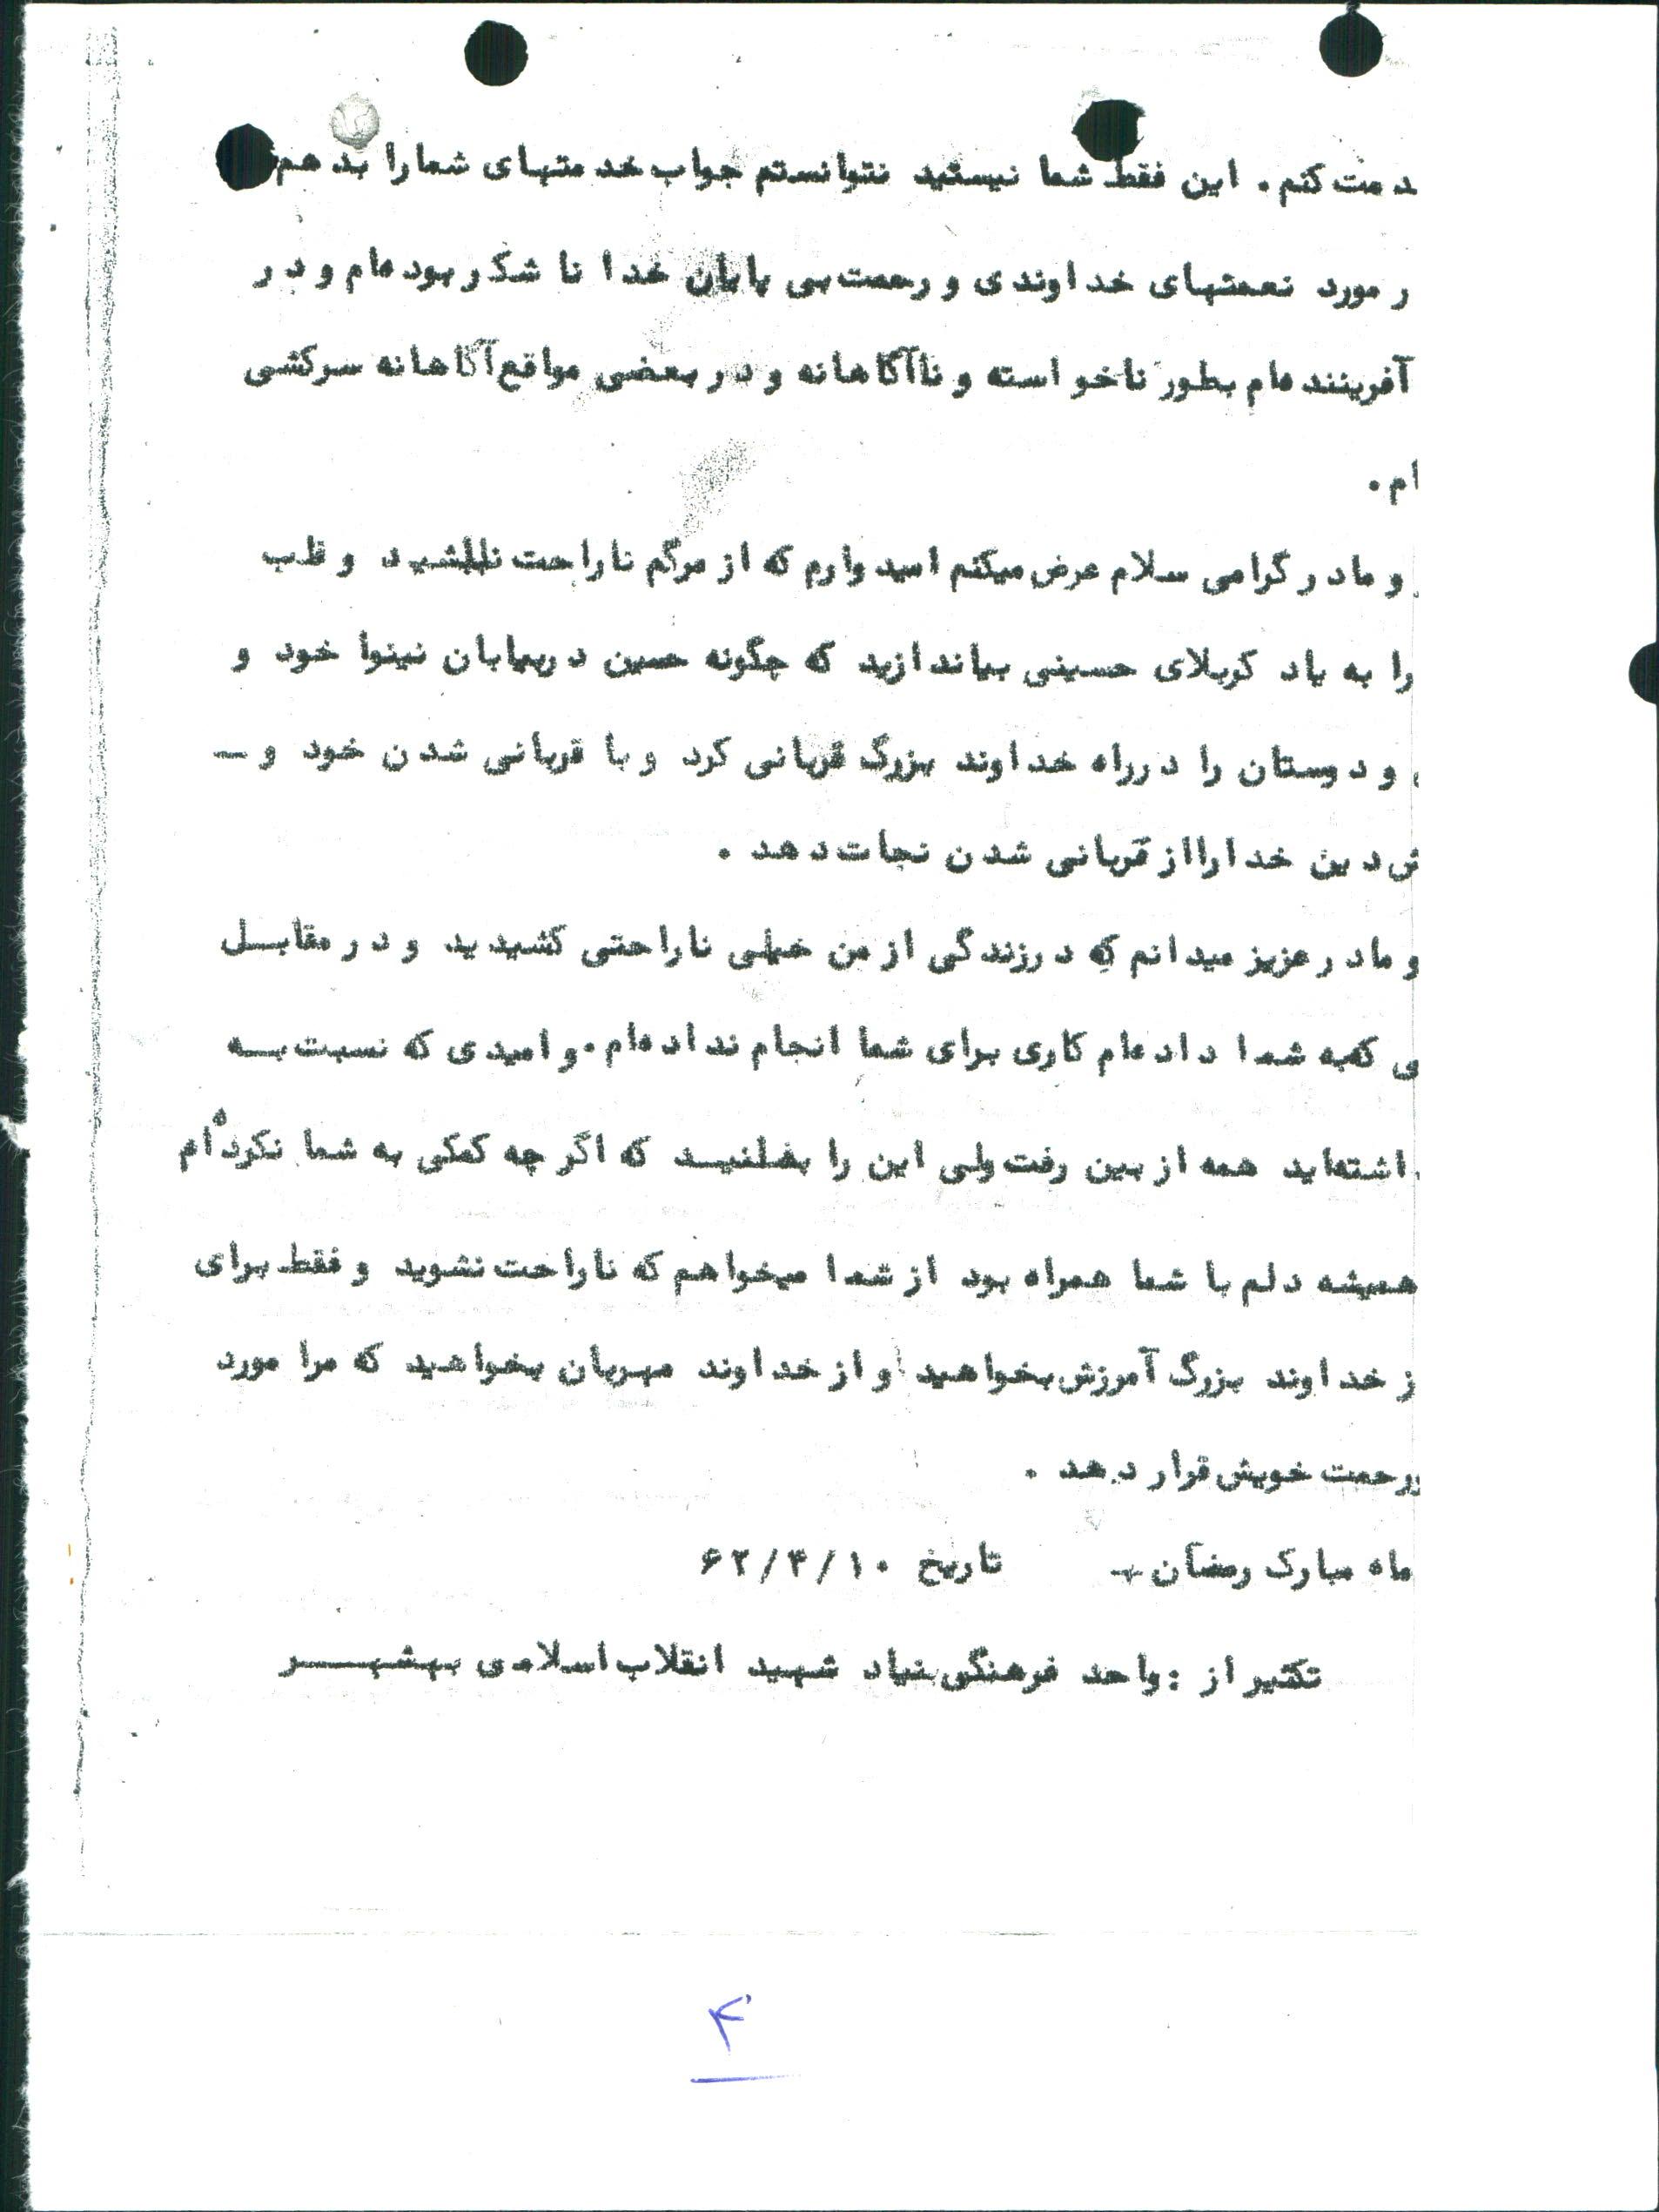 دمت کنم. این فقط شما نیستید نتوانستم جواب خدمتهای شما را بدهم
ر مورد نعمتهای خداوندی و رحمت بی پایان خدا نا شکر بوده‌ام و در
آفریننده‌ام بطور ناخواسته و ناآگاهانه و در بعضی مواقع آگاهانه سرکشی
ام.
و مادر گرامی سلام عرض میکنم امیدوارم که از مرگم ناراحت نباشید و قلب
را به یاد کربلای حسینی بیاندازید که چگونه حسین در بیابان نینوا خود و
و دوستان را در راه خداوند بزرگ قربانی کرد و با قربانی شدن خود و –
ش دین خدا را از قربانی شدن نجات دهد.
و مادر عزیز میدانم که در زندگی از من خیلی ناراحتی کشیدید و در مقابل
ی که به شما داده‌ام کاری برای شما انجام نداده‌ام. و امیدی که نسبت به
اشته‌اید همه از بین رفت ولی این را بدانید که اگر چه کمکی به شما نکرده ام
همیشه دلم با شما همراه بود از شما میخواهم که ناراحت نشوید و فقط برای
ز خداوند بزرگ آمرزش بخواهید و از خداوند مهربان بخواهید که مرا مورد
ورحمت خویش قرار دهد.
ماه مبارک رمضان – تاریخ ۶۲/۴/۱۰
تکثیر از : واحد فرهنگی بنیاد شهید انقلاب اسلامی بهشهر
۴